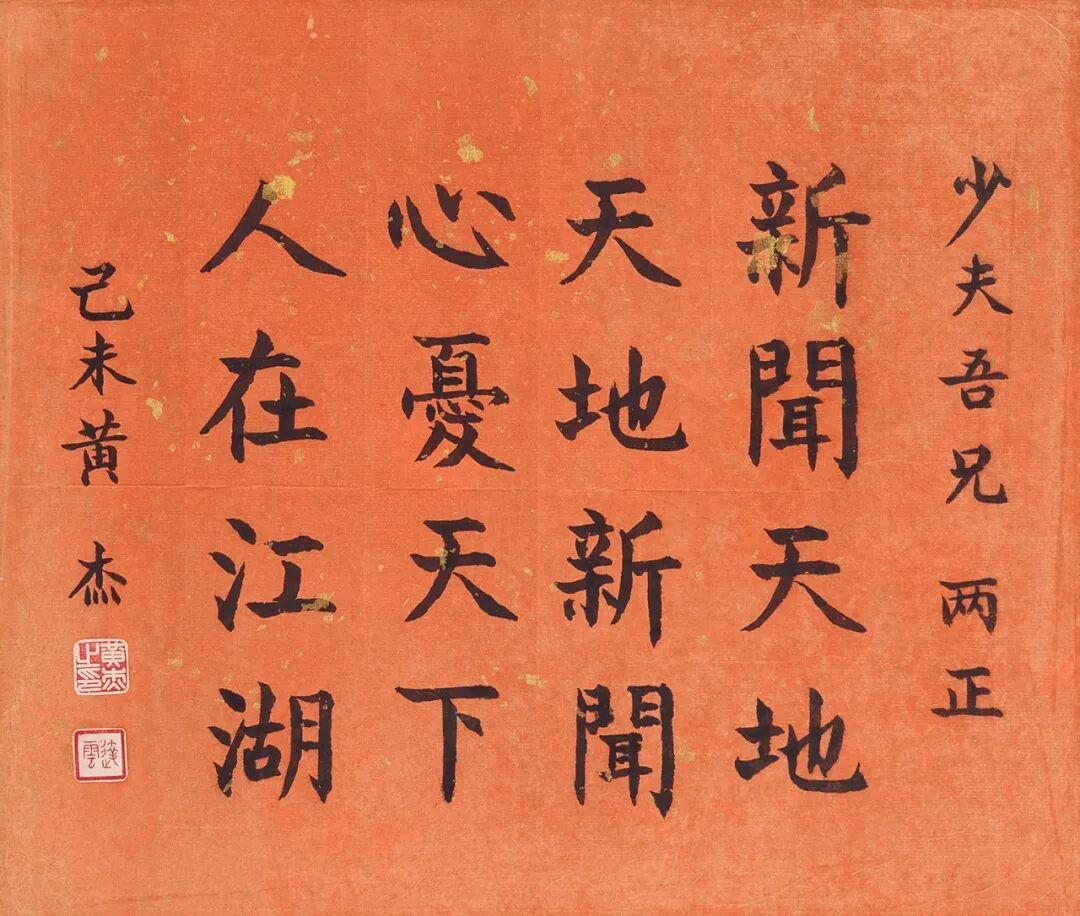 少夫吾兄 两正
新聞天地
天地新聞
心憂天下
人在江湖
己未黄杰
黄杰之印
達雲